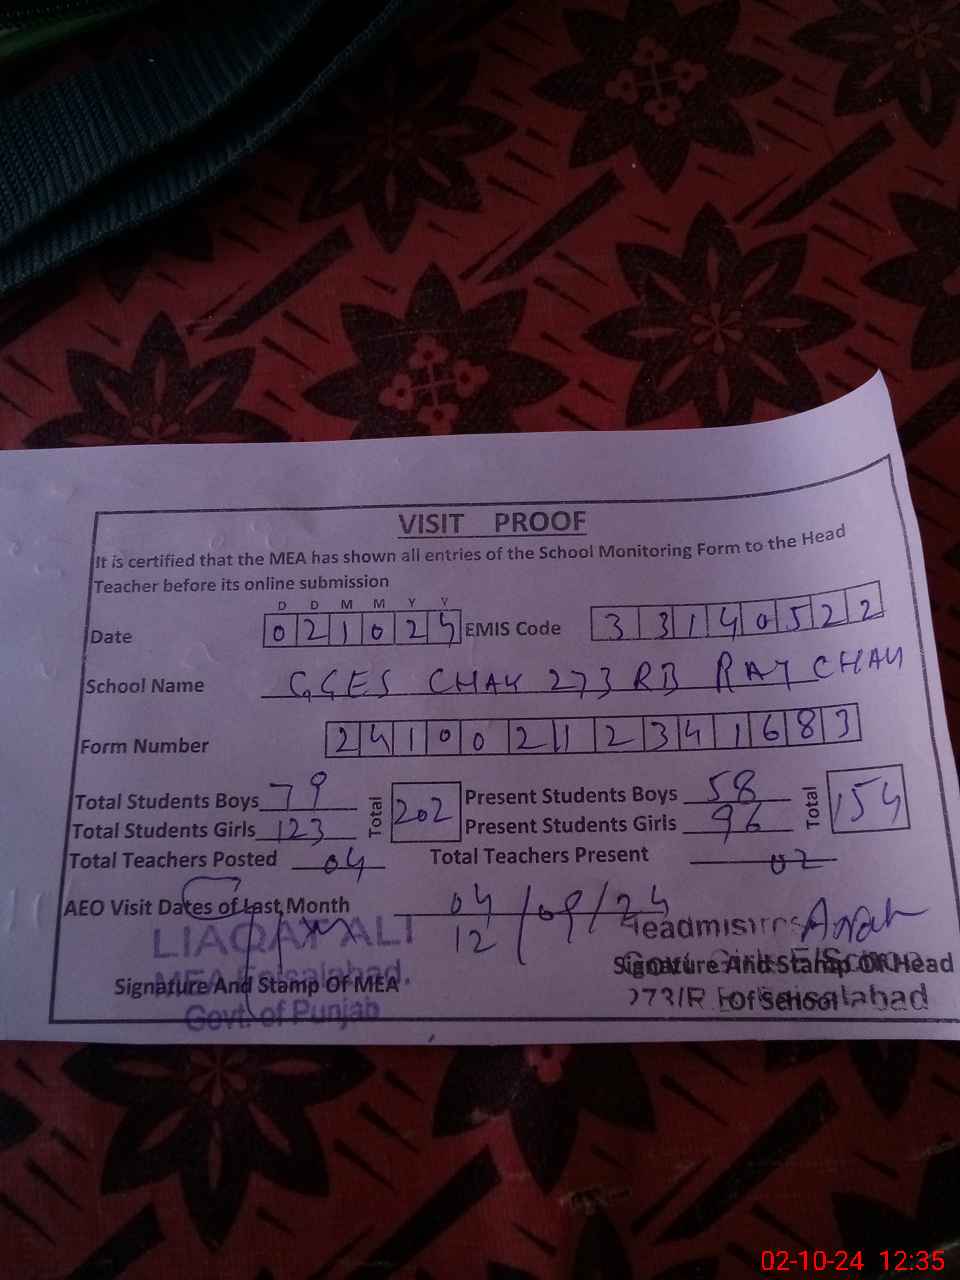 VISIT PROOF
It is certified that the MEA has shown all entries of the School Monitoring Form to the Head
Teacher before its online submission
D D M M Y Y
Date 021024 EMIS Code 33140522
School Name GGES CHAK 273 RB RAJ CHAK
Form Number 241002112341683
Total Students Boys 79 Total 202 Present Students Boys 58 Total 154
Total Students Girls 123 Present Students Girls 96
Total Teachers Posted 04 Total Teachers Present 02
AEO Visit Dates of Last Month 04/09/24
12
LIAQAT ALI
MEA Faisalabad.
Govt. of Punjab
Signature And Stamp Of MEA
Signature And Stamp Of Head
Of School
02-10-24 12:35